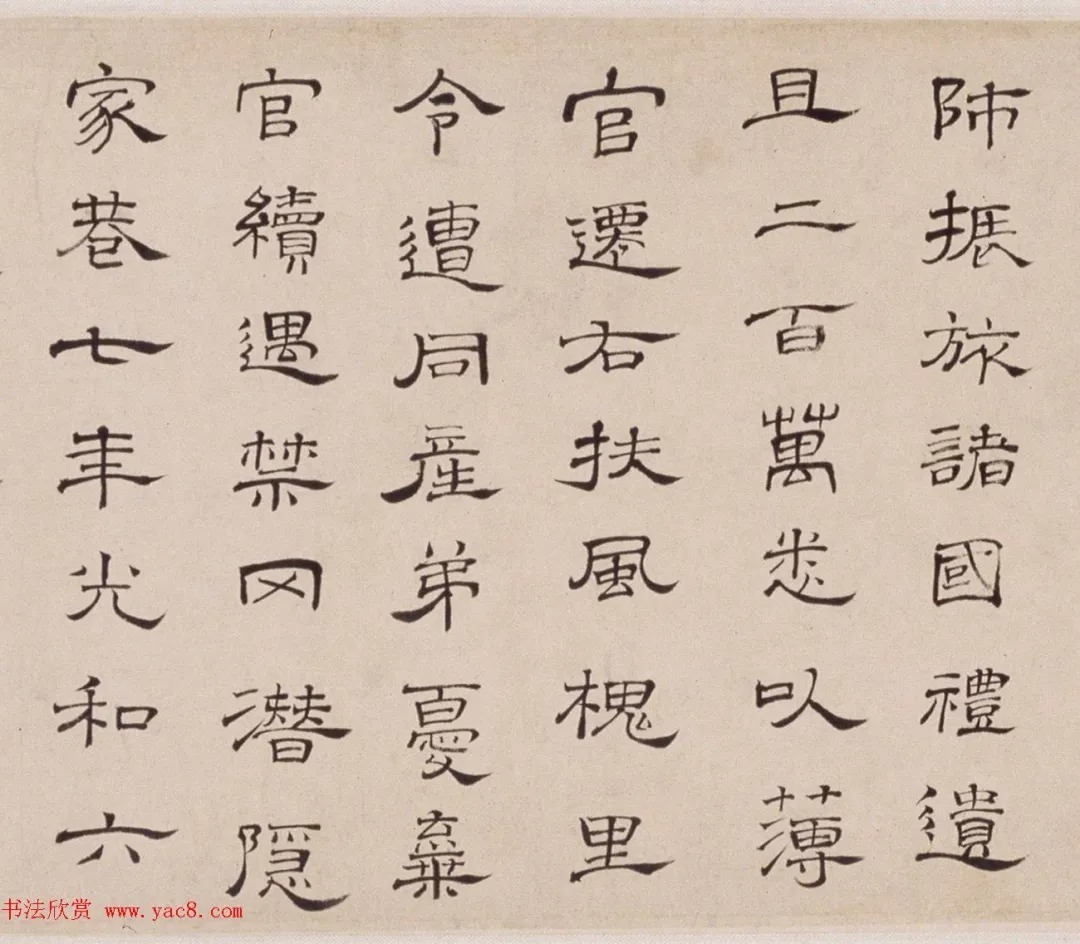 師振旅諸國禮遺
且二百萬悉以薄
官遷右扶風槐里
令遭同產弟憂棄
官續遇禁冈潛隱
家巷七年光和六
书法欣赏 www.yac8.com